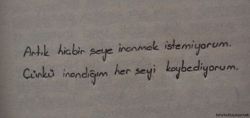 Artık hiçbir şeye inanmak istemiyorum.
Çünkü inandığım her şeyi kaybediyorum.